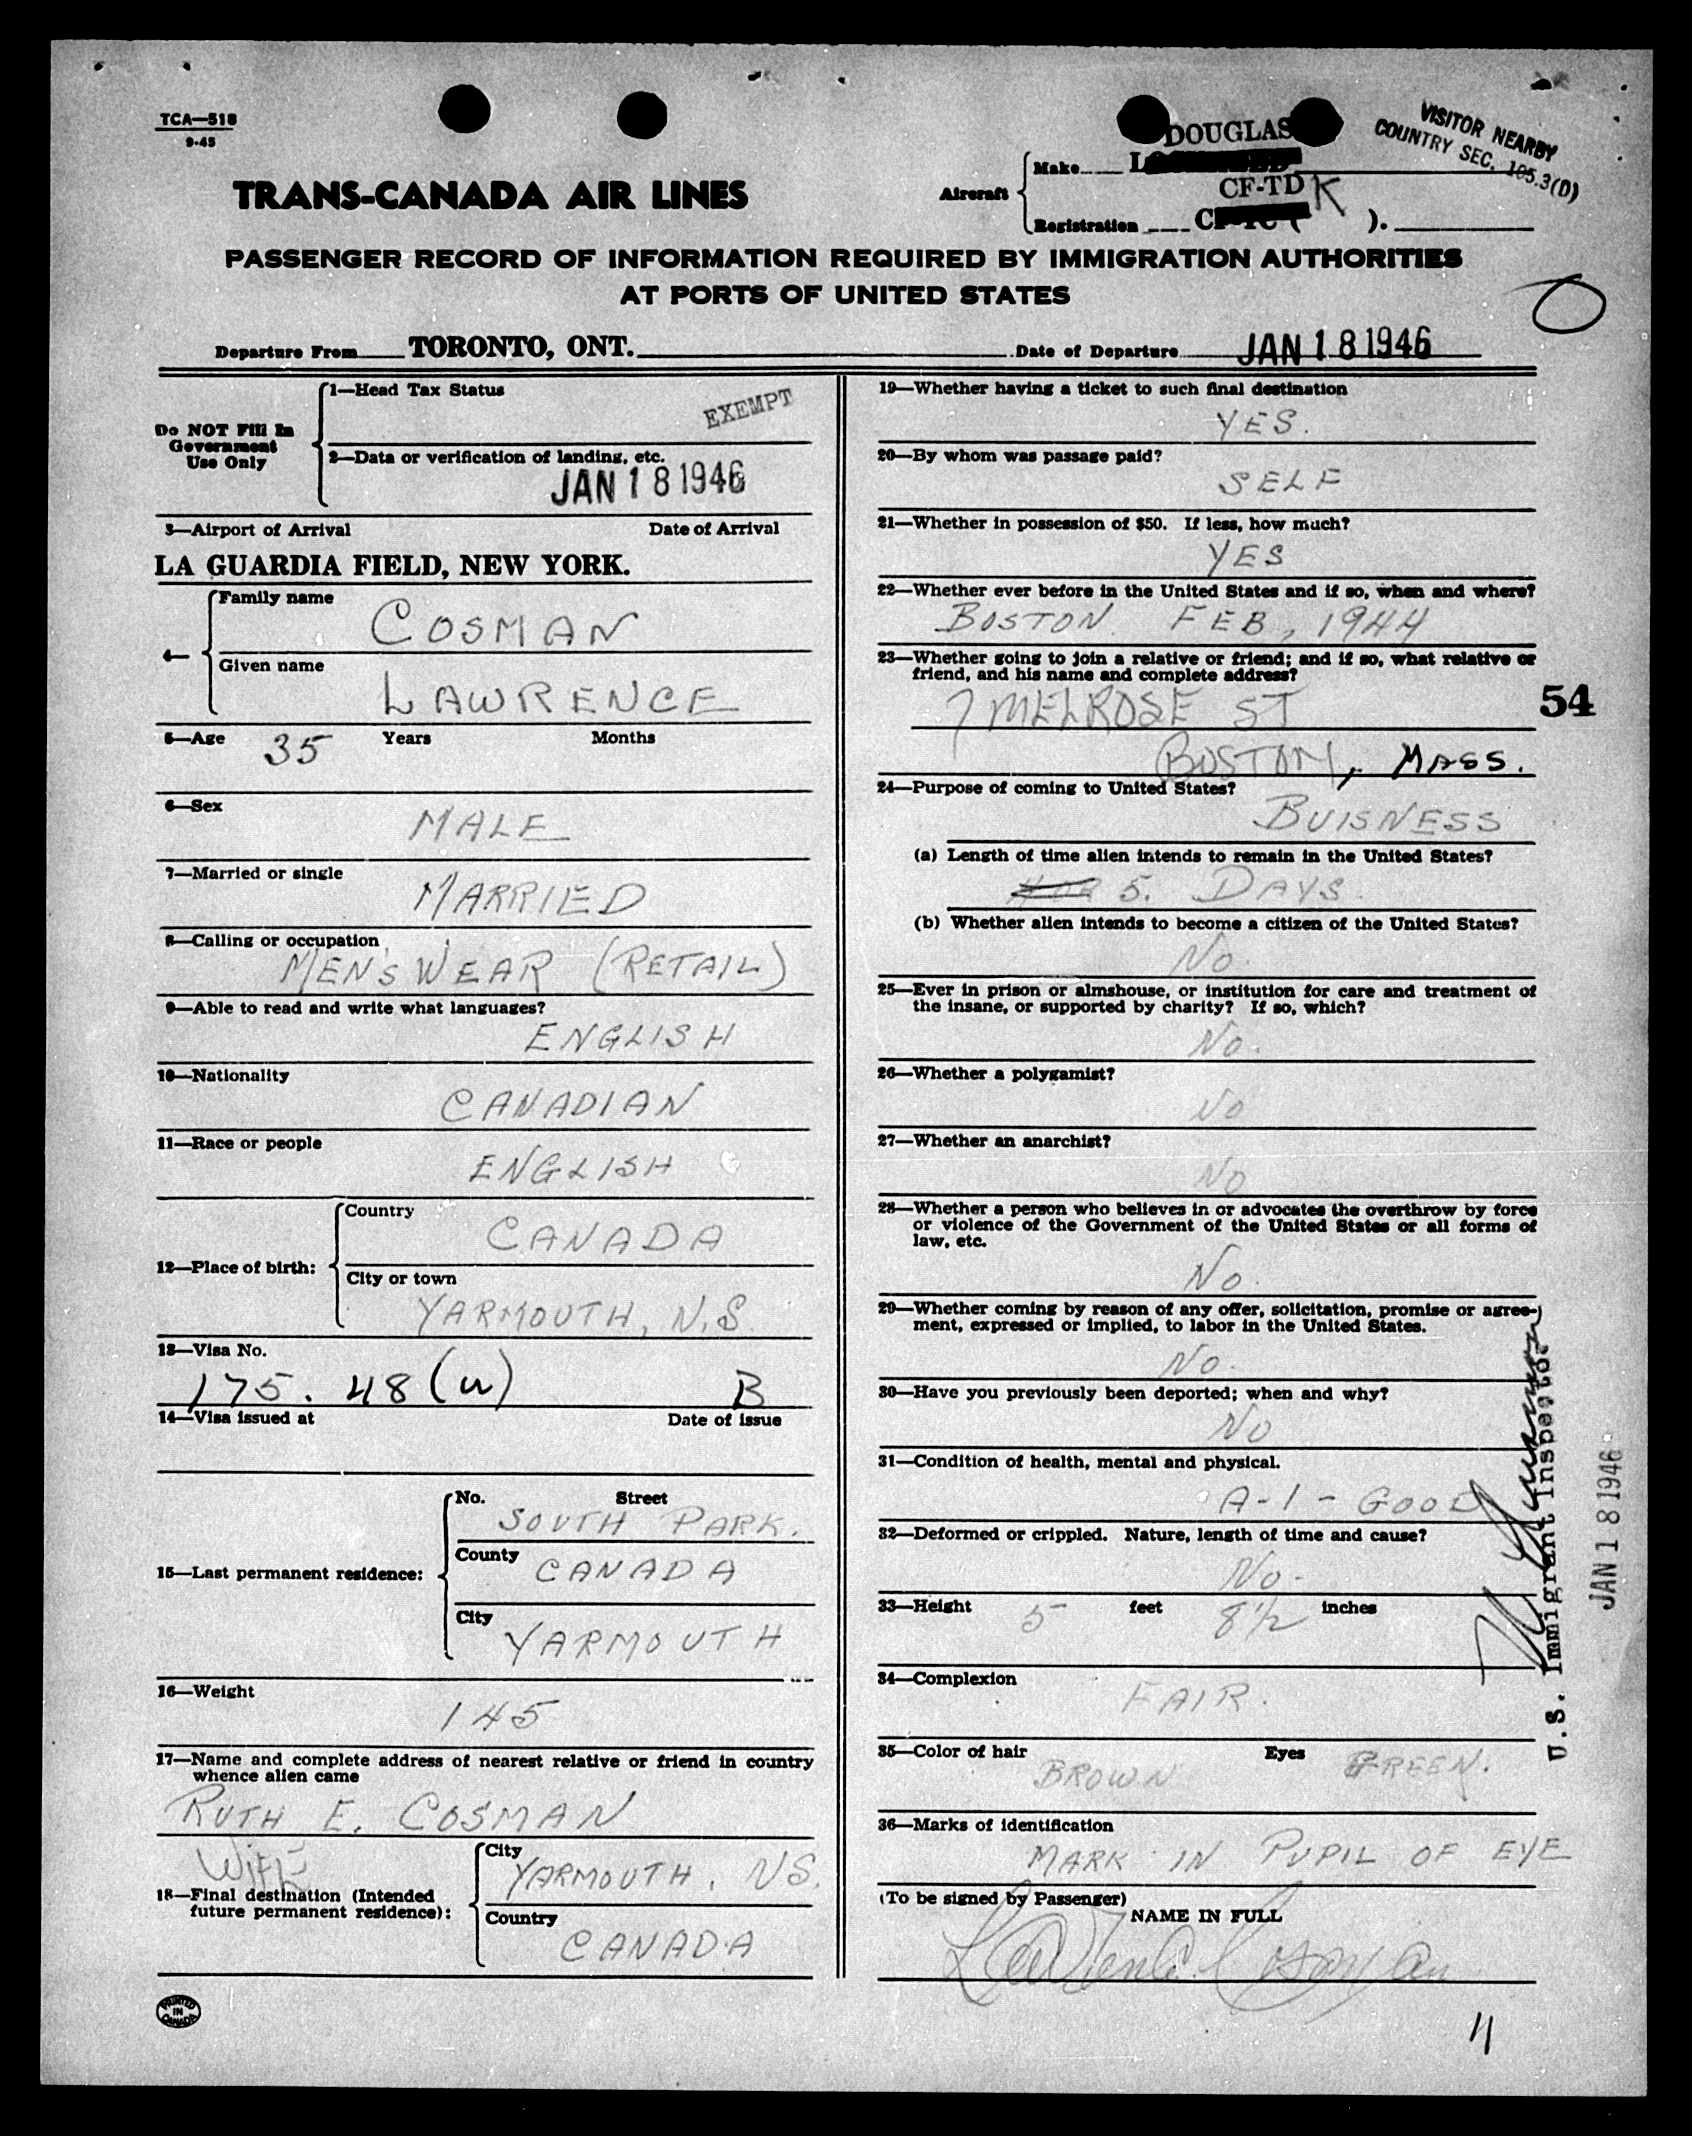 TCA—518
9-45
DOUGLAS
VISITOR NEARBY
COUNTRY SEC. 105.3(D)
TRANS-CANADA AIR LINES
Aircraft
Make
CF-TDK
Registration ( ).
PASSENGER RECORD OF INFORMATION REQUIRED BY IMMIGRATION AUTHORITIES
AT PORTS OF UNITED STATES
Departure From TORONTO, ONT. Date of Departure JAN 18 1946
Do NOT Fill In
Government
Use Only
1—Head Tax Status
EXEMPT
2—Data or verification of landing, etc.
JAN 18 1946
3—Airport of Arrival Date of Arrival
LA GUARDIA FIELD, NEW YORK.
4—
Family name
COSMAN
Given name
LAWRENCE
5—Age 35 Years Months
6—Sex
MALE
7—Married or single
MARRIED
8—Calling or occupation
MEN'S WEAR (RETAIL)
9—Able to read and write what languages?
ENGLISH
10—Nationality
CANADIAN
11—Race or people
ENGLISH
12—Place of birth:
Country
CANADA
City or town
YARMOUTH, N.S.
13—Visa No.
175.48 (u) B
14—Visa issued at Date of issue
15—Last permanent residence:
No. Street
SOUTH PARK.
County
CANADA
City
YARMOUTH
16—Weight
145
17—Name and complete address of nearest relative or friend in country
whence alien came
RUTH E. COSMAN
WIFE
18—Final destination (Intended
future permanent residence):
City
YARMOUTH, NS.
Country
CANADA
PRINTED
IN
CANADA
19—Whether having a ticket to such final destination
YES.
20—By whom was passage paid?
SELF
21—Whether in possession of $50. If less, how much?
YES
22—Whether ever before in the United States and if so, when and where?
BOSTON FEB, 1944
23—Whether going to join a relative or friend; and if so, what relative or
friend, and his name and complete address?
7 MELROSE ST
BOSTON, MASS.
54
24—Purpose of coming to United States?
BUISNESS
(a) Length of time alien intends to remain in the United States?
5. DAYS.
(b) Whether alien intends to become a citizen of the United States?
No.
25—Ever in prison or almshouse, or institution for care and treatment of
the insane, or supported by charity? If so, which?
No.
26—Whether a polygamist?
No
27—Whether an anarchist?
No
28—Whether a person who believes in or advocates the overthrow by force
or violence of the Government of the United States or all forms of
law, etc.
No.
29—Whether coming by reason of any offer, solicitation, promise or agree-
ment, expressed or implied, to labor in the United States.
No.
30—Have you previously been deported; when and why?
No
31—Condition of health, mental and physical.
A-1-GOOD
32—Deformed or crippled. Nature, length of time and cause?
No.
33—Height 5 feet 8½ inches
34—Complexion
FAIR.
35—Color of hair Eyes
BROWN GREEN.
36—Marks of identification
MARK IN PUPIL OF EYE
(To be signed by Passenger)
NAME IN FULL
Lawrence Cosman
U.S. Immigrant Inspector
JAN 18 1946
11